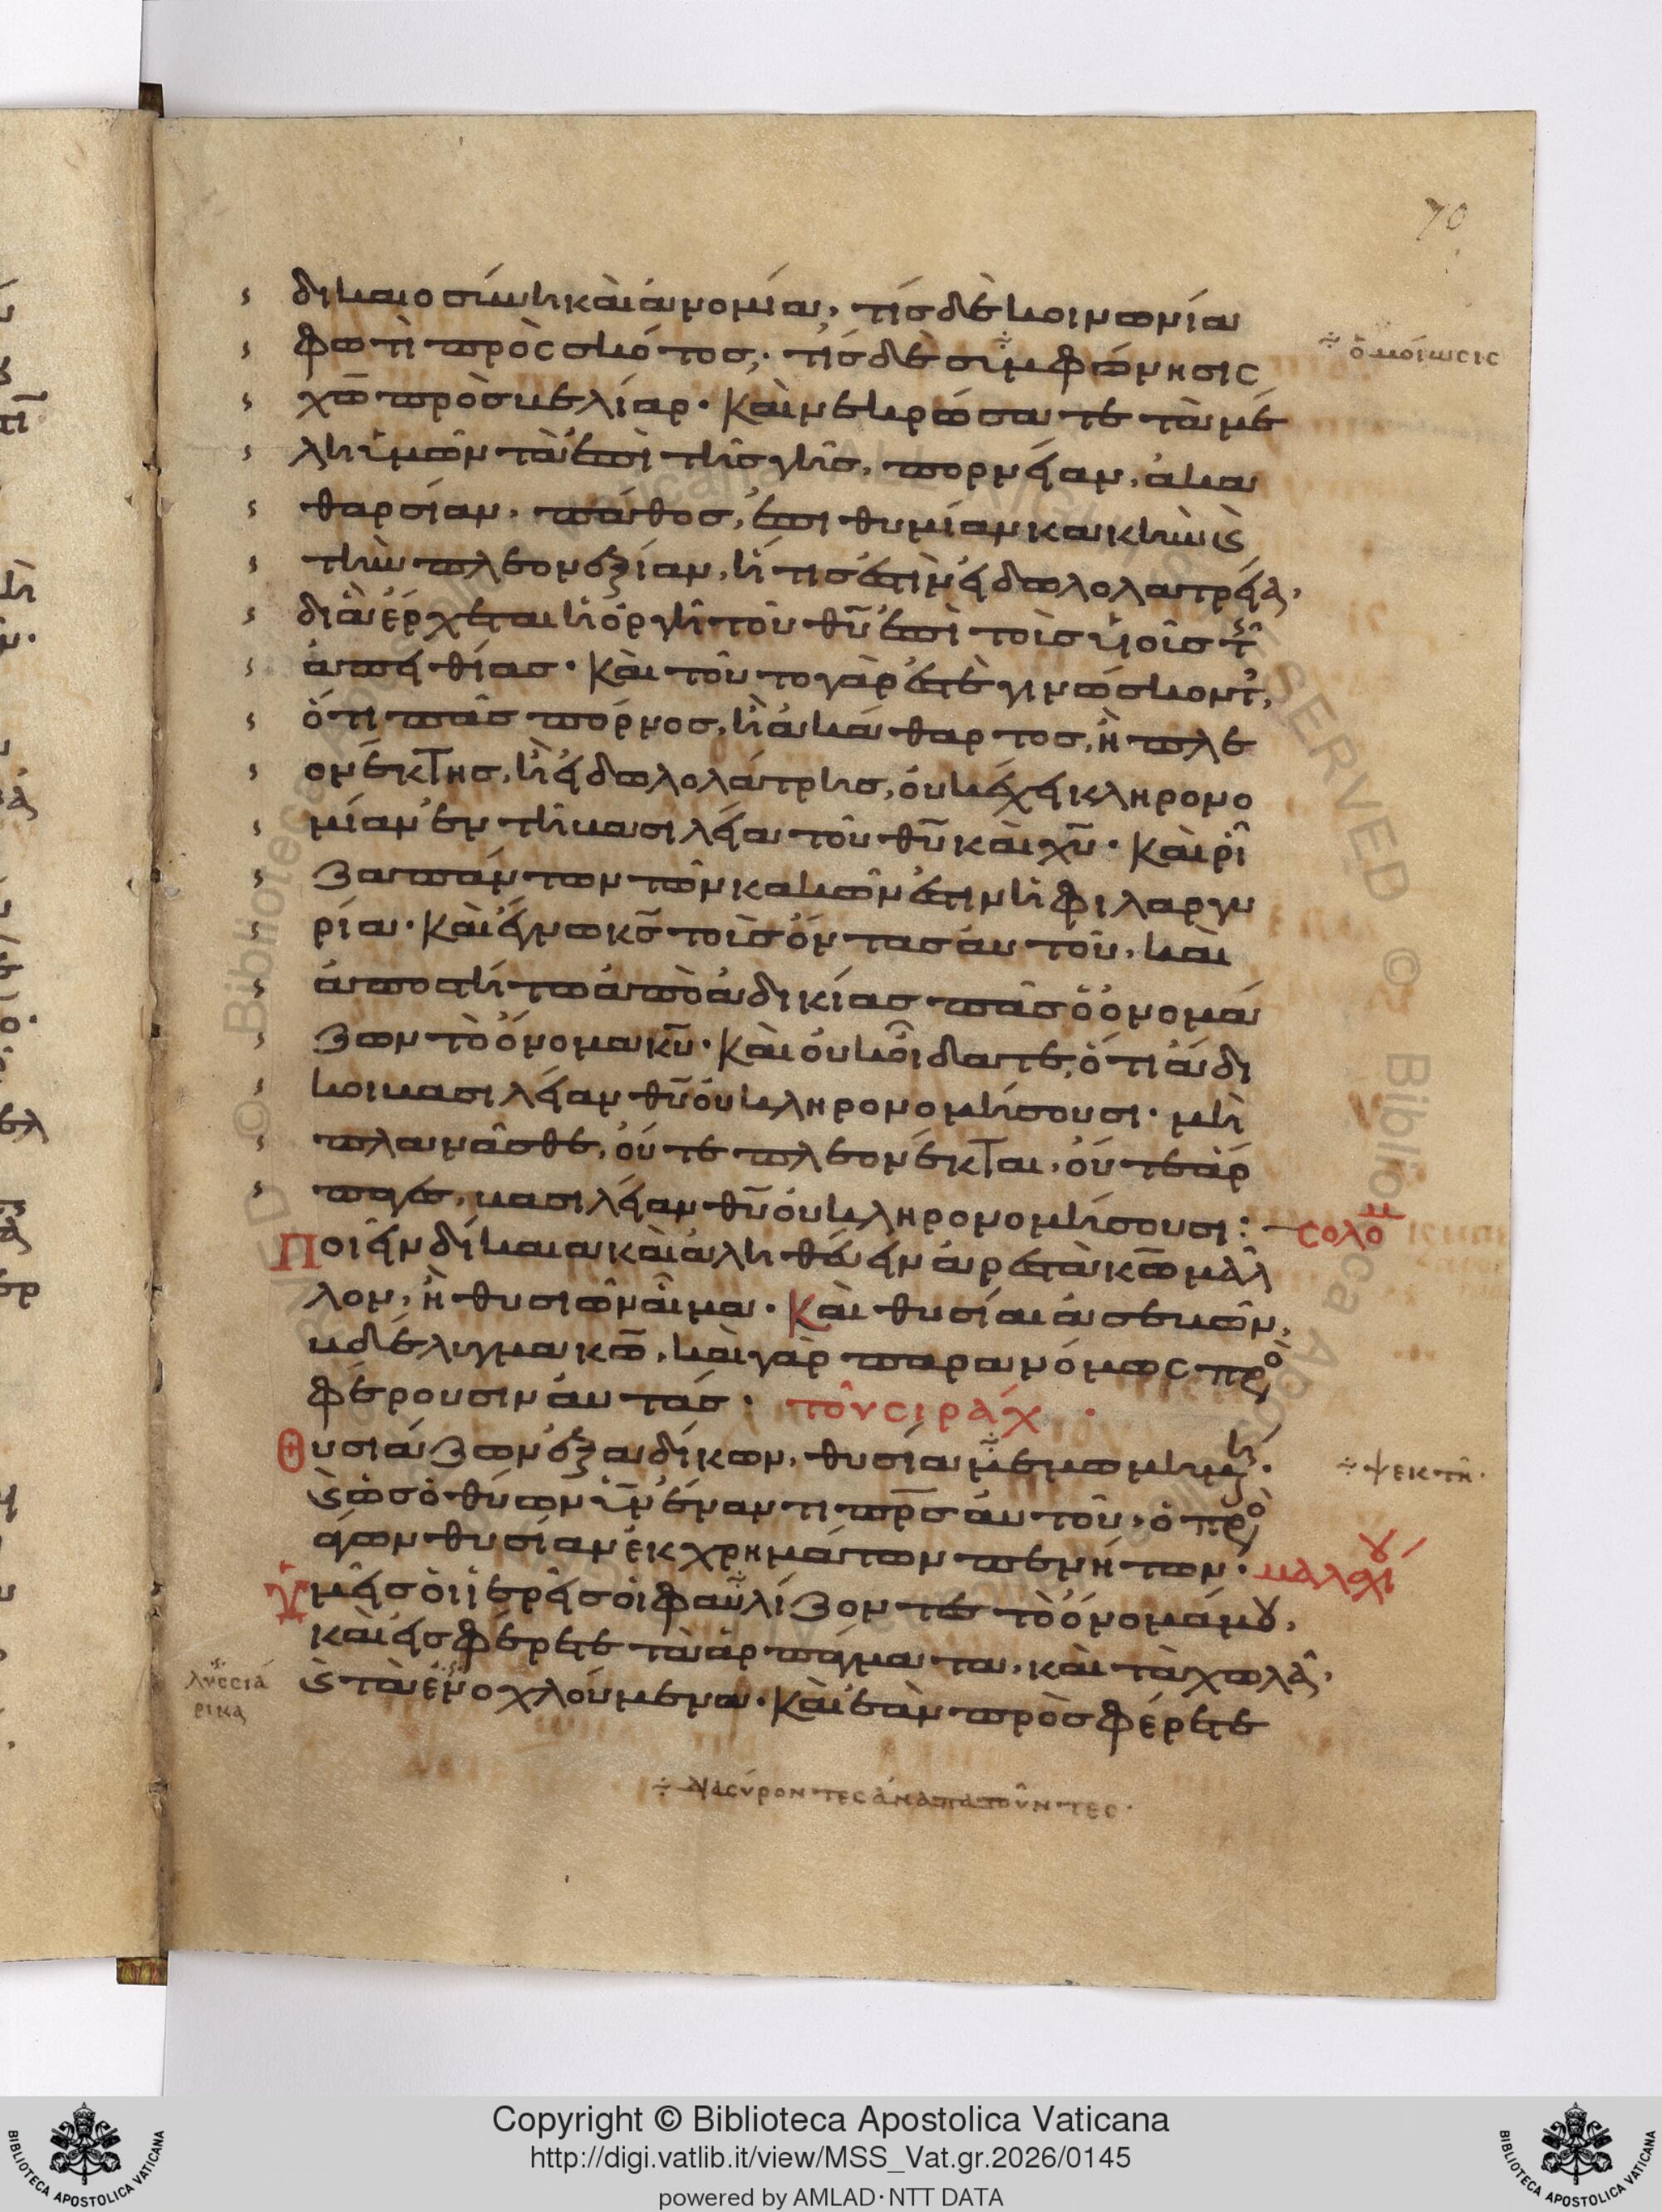 70
δικαιοσύνη καὶ ἀνομία, τίς δὲ κοινωνία
φωτὶ πρὸς σκότος; τίς δὲ συμφώνησις
÷ ὁμοίωσις
χῶ πρὸς βελίαρ· Καὶ νεκρώσατε τὰ μέ
λη ὑμῶν τὰ ἐπὶ τῆς γῆς, πορνείαν, ἀκα
θαρσίαν, πάθος, ἐπιθυμίαν κακὴν ϗ
τὴν πλεονεξίαν, ἥτις ἐστὶν εἰδωλολατρεία,
δι ἃ ἔρχεται ἡ ὀργὴ τοῦ θῦ ἐπὶ τοῖς υἱοῖς τῆς
ἀπειθίας· Καὶ τοῦτο γὰρ ἐστὲ γινώσκοντες,
ὅτι πᾶς πόρνος, ἢ ἀκάθαρτος, ἢ πλε
ονέκτης, ἢ εἰδωλολάτρης, οὐκ ἔχει κληρονο
μίαν ἐν τῇ βασιλεία τοῦ θῦ καὶ χῦ· Καὶ ῥί
ζα πάντων τῶν κακῶν ἐστιν ἡ φιλαργυ
ρία· Καὶ ἔγνω κς τοὺς ὄντας αὐτοῦ, καὶ
ἀποστήτω ἀπὸ ἀδικίας πᾶς ὁ ὀνομά
ζων τὸ ὄνομα κῦ· Καὶ οὐκ οἴδατε, ὅτι ἄδι
κοι βασιλείαν θῦ οὐ κληρονομήσουσι· μὴ
πλανᾶσθε, οὔτε πλεονέκται, οὔτε ἅρ
παγες, βασιλείαν θῦ οὐ κληρονομήσουσι:
σολομ
Ποιεῖν δίκαια καὶ ἀληθεύειν ἀρεστὰ κῶ μᾶλ
λον, ἢ θυσιῶν αἷμα· Καὶ θυσίαι ἀσεβῶν,
βδέλυγμα κῶ, καὶ γὰρ παρανόμως προς
φέρουσιν αὐτάς· τοῦ σιράχ·
Θυσιάζων ἐξ ἀδίκων, θυσία μεμωκημένη·
÷ ψεκτὴ·
ϗ ὡς ὁ θύων υἱν ἔναντι πρς αὐτοῦ, ὁ προς
άγων θυσίαν ἐκ χρημάτων πενήτων·
μαλαχίου
Ὑμεῖς οἱ ἱερεῖς οἱ φαυλίζοντες τὸ ὄνομά μου,
καὶ εἰσφέρετε τὰ ἁρπάγματα, καὶ τὰ χωλὰ,
ϗ τὰ ἐνοχλούμενα· Καὶ ἐὰν προσφέρετε
λυσσιά
ρικα
÷ διασύροντες ἀναπατοῦντες·
Copyright © Biblioteca Apostolica Vaticana
http://digi.vatlib.it/view/MSS_Vat.gr.2026/0145
powered by AMLAD·NTT DATA
BIBLIOTECA APOSTOLICA VATICANA
BIBLIOTECA APOSTOLICA VATICANA